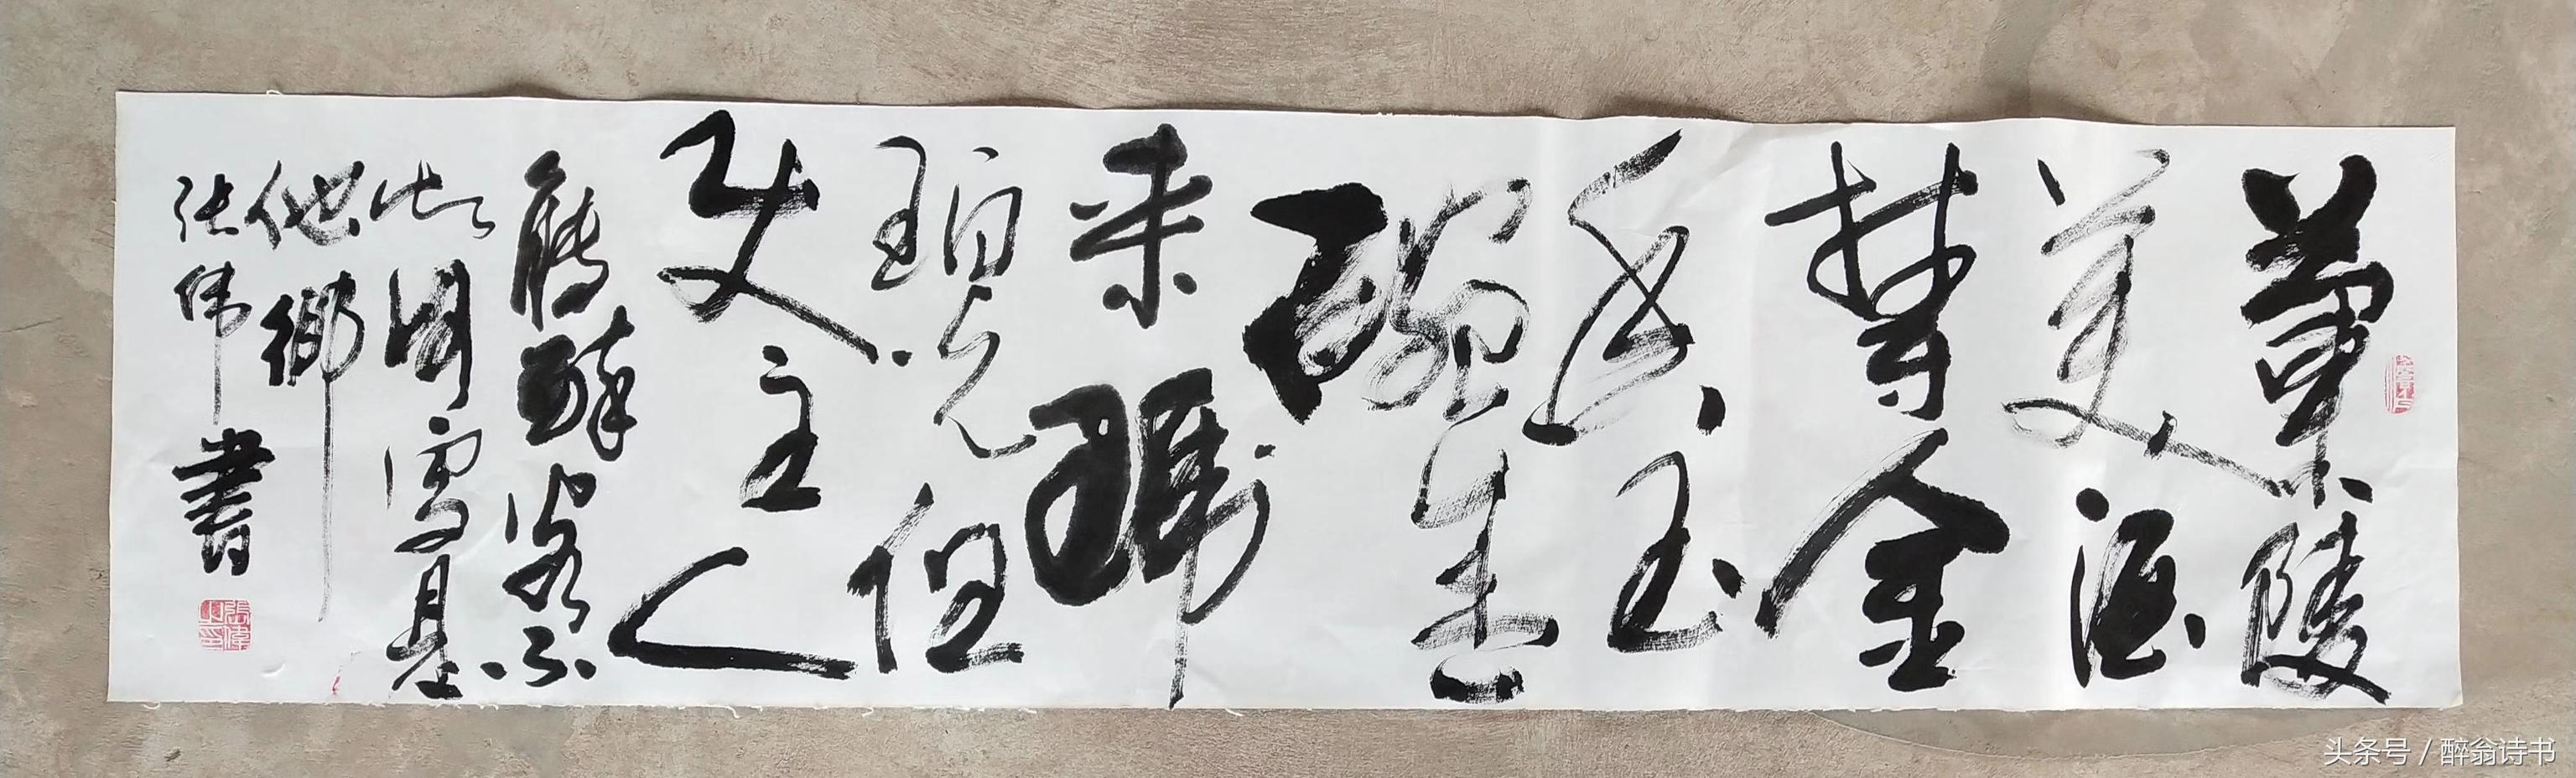 蘭陵
美酒
欝金
香玉
碗盛
来琥
珀光但
使主人
能醉客不
知何處是
他鄉
张伟書
張偉之印
头条号 / 醉翁诗书